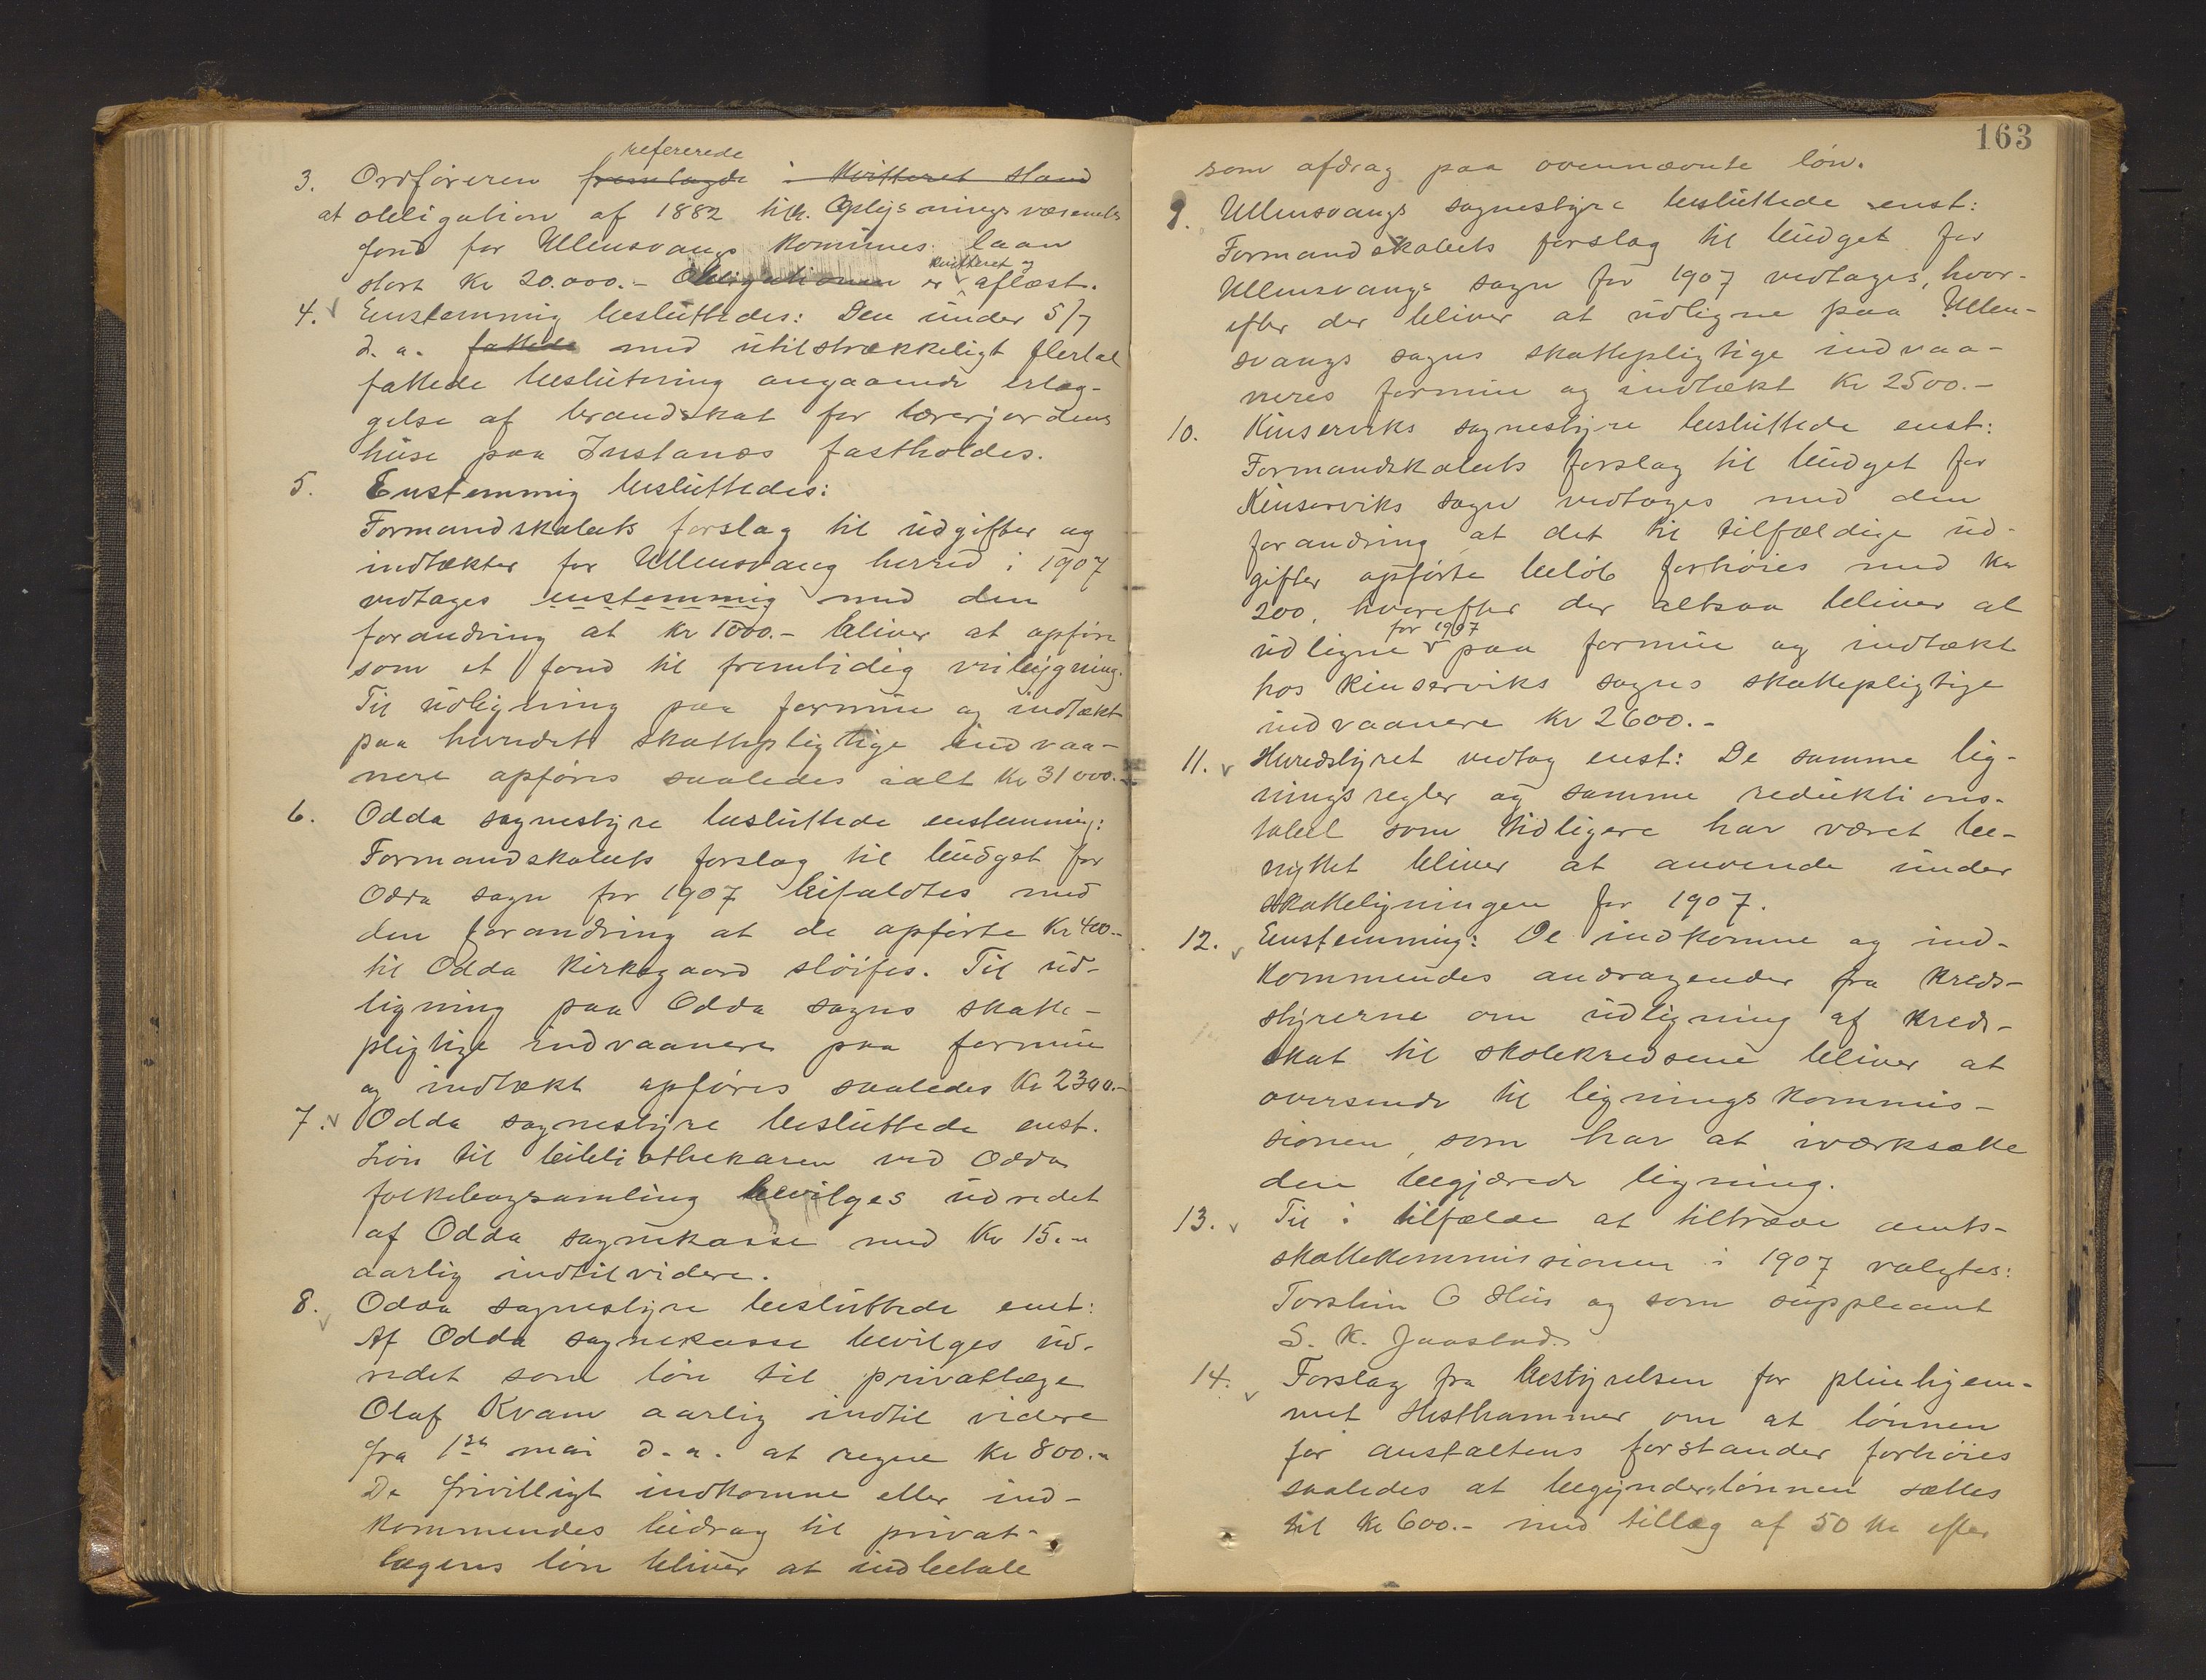 refererede
3. Ordføreren fremlagde i kvitteret stand
at obligation af 1882 tilh. Oplysningsvæsenets
fond for Ullensvangs kommunes laan
kvitteret og
stort kr 20.000.- Obligationen er aflæst.
4. Enstemmig besluttedes: Den under 5/7
d. a. fattede med utilstrækkeligt flertal
fattede beslutning angaaende erlæg-
gelse af brandskat for lærerjordens
huse paa Instanæs fastholdes.
5. Enstemmig besluttedes:
Formandskabets forslag til udgifter og
indtækter for Ullensvang herred i 1907
vedtages enstemmig med den
forandring at kr 1000.- bliver at opføre
som et fond til fremtidig veibygning.
Til udligning paa formue og indtækt
paa herredets skattepligtige indvaa-
nere opføres saaledes ialt kr 31000.-
6. Odda sognestyre besluttede enstemmig:
Formandskabets forslag til budget for
Odda sogn for 1907 bifaldtes med
den forandring at de opførte kr 400.-
til Odda kirkegaard sløifes. Til ud-
ligning paa Odda sogns skatte-
pligtige indvaanere paa formue
og indtækt opføres saaledes kr 2300.-
7. Odda sognestyre besluttede enst.
Løn til bibliothekaren ved Odda
folkebogsamling bevilges udredet
af Odda sognekasse med kr 15.-
aarlig indtilvidere.
8. Odda sognestyre besluttede enst:
Af Odda sognekasse bevilges ud-
redet som løn til privatlæge
Olaf Kvam aarlig indtil videre
fra 1ste mai d. a. at regne kr 800.-
De frivilligt indkomne eller ind-
kommendes bidrag til privat-
lægens løn bliver at indbetale
163
som afdrag paa ovennævnte løn.
9. Ullensvangs sognestyre besluttede enst:
Formandskabets forslag til budget for
Ullensvangs sogn for 1907 vedtages, hvor-
efter der bliver at udligne paa Ullen-
svangs sogns skattepligtige indvaa-
neres formue og indtækt kr 2500.-
10. Kinserviks sognestyre besluttede enst:
Formandskabets forslag til budget for
Kinserviks sogn vedtages med den
forandring at det til tilfældige ud-
gifter opførte beløb forhøies med kr
200, hvorefter der altsaa bliver at
for 1907
udligne paa formue og indtækt
hos Kinserviks sogns skattepligtige
indvaanere kr 2600.-
11. Herredstyret vedtog enst: De samme lig-
ningsregler og samme reduktions-
tabel som tidligere har været be-
nyttet bliver at anvende under
skatteligningen for 1907.
12. Enstemmig: De indkomne og ind-
kommendes andragender fra kreds-
styrerne om udligning af kreds-
skat til skolekredsene bliver at
oversende til ligningskommis-
sionen, som har at iværksætte
den begjærede ligning.
13. Til i tilfælde at tiltræde amts-
skattekommissionen i 1907 valgtes:
Torstein O Hus og som suppleant
S. K. Jaastad.
14. Forslag fra bestyrelsen for pleiehjem-
met Hesthammer om at lønnen
for anstaltens forstander forhøies
saaledes at begynderlønnen sættes
til kr 600.- med tillæg af 50 kr efter